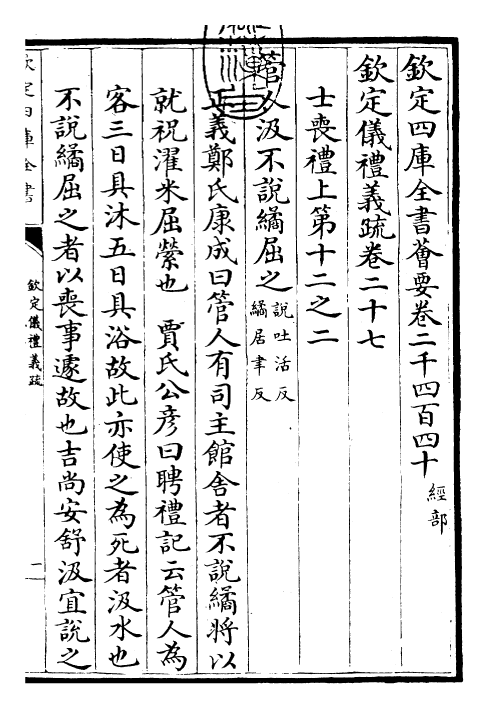 欽定四庫全書薈要卷二千四百四十 經部
欽定儀禮義疏卷二十七
士喪禮上第十二之二
管人汲不說繘屈之 說吐活反 繘居聿反
正義鄭氏康成曰管人有司主館舍者不說繘將以
就祝濯米屈縈也 賈氏公彦曰聘禮記云管人為
客三日具沐五日具浴故此亦使之為死者汲水也
不說繘屈之者以喪事遽故也吉尚安舒汲宜說之
欽定四庫全書
欽定儀禮義疏